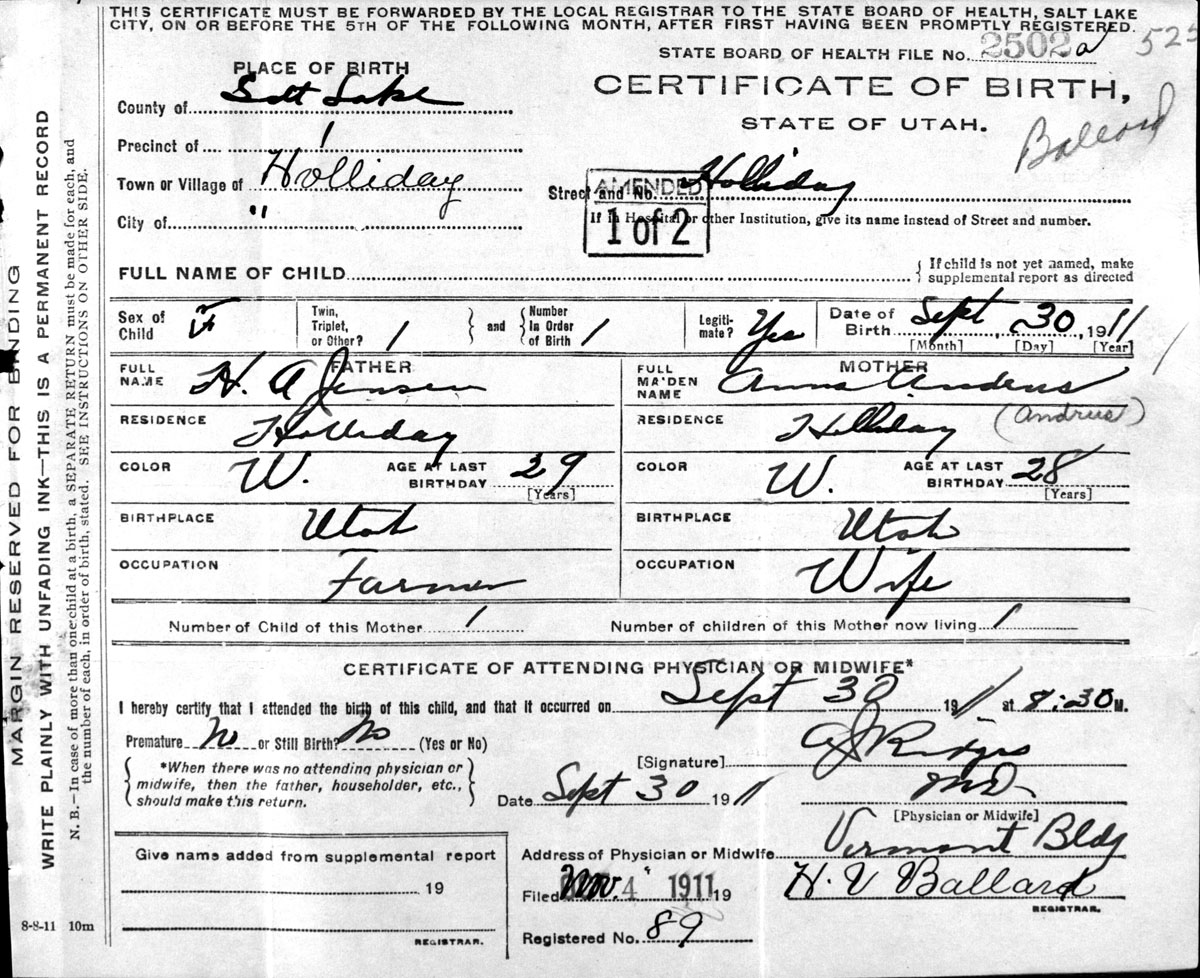 THIS CERTIFICATE MUST BE FORWARDED BY THE LOCAL REGISTRAR TO THE STATE BOARD OF HEALTH, SALT LAKE
CITY, ON OR BEFORE THE 5TH OF THE FOLLOWING MONTH, AFTER FIRST HAVING BEEN PROMPTLY REGISTERED.
STATE BOARD OF HEALTH FILE No. 2502 a 525
PLACE OF BIRTH
CERTIFICATE OF BIRTH,
STATE OF UTAH.
Ballard
County of Salt Lake
Precinct of 1
Town or Village of Holliday
Street and No. Holliday
AMENDED
1 of 2
City of "
If in Hospital or other Institution, give its name instead of Street and number.
FULL NAME OF CHILD
{ If child is not yet named, make
supplemental report as directed
Sex of Child F
Twin, Triplet, or Other? 1
and { Number In Order of Birth 1
Legiti-mate? Yes
Date of Birth Sept 30, 1911
[Month] [Day] [Year]
FATHER
FULL NAME H. A Jensen
RESIDENCE Holliday
COLOR W. AGE AT LAST BIRTHDAY 29
[Years]
BIRTHPLACE Utah
OCCUPATION Farmer
MOTHER
FULL MAIDEN NAME Anna Anderus
(Andrus)
RESIDENCE Holliday
COLOR W. AGE AT LAST BIRTHDAY 28
[Years]
BIRTHPLACE Utah
OCCUPATION Wife
Number of Child of this Mother 1
Number of children of this Mother now living 1
CERTIFICATE OF ATTENDING PHYSICIAN OR MIDWIFE*
I hereby certify that I attended the birth of this child, and that it occurred on Sept 30 1911 at 8:30 M.
Premature No or Still Birth? No (Yes or No)
{ *When there was no attending physician or
midwife, then the father, householder, etc.,
should make this return. }
[Signature]
Date Sept 30 1911
MD
[Physician or Midwife]
Give name added from supplemental report
19
REGISTRAR.
Address of Physician or Midwife Vermont Bldg
Filed Nov. 4 1911 19
H. V Ballard
REGISTRAR.
Registered No. 89
8-8-11 10m
MARGIN RESERVED FOR BINDING
WRITE PLAINLY WITH UNFADING INK—THIS IS A PERMANENT RECORD
N. B.—In case of more than one child at a birth, a SEPARATE RETURN must be made for each, and
the number of each, in order of birth, stated. SEE INSTRUCTIONS ON OTHER SIDE.